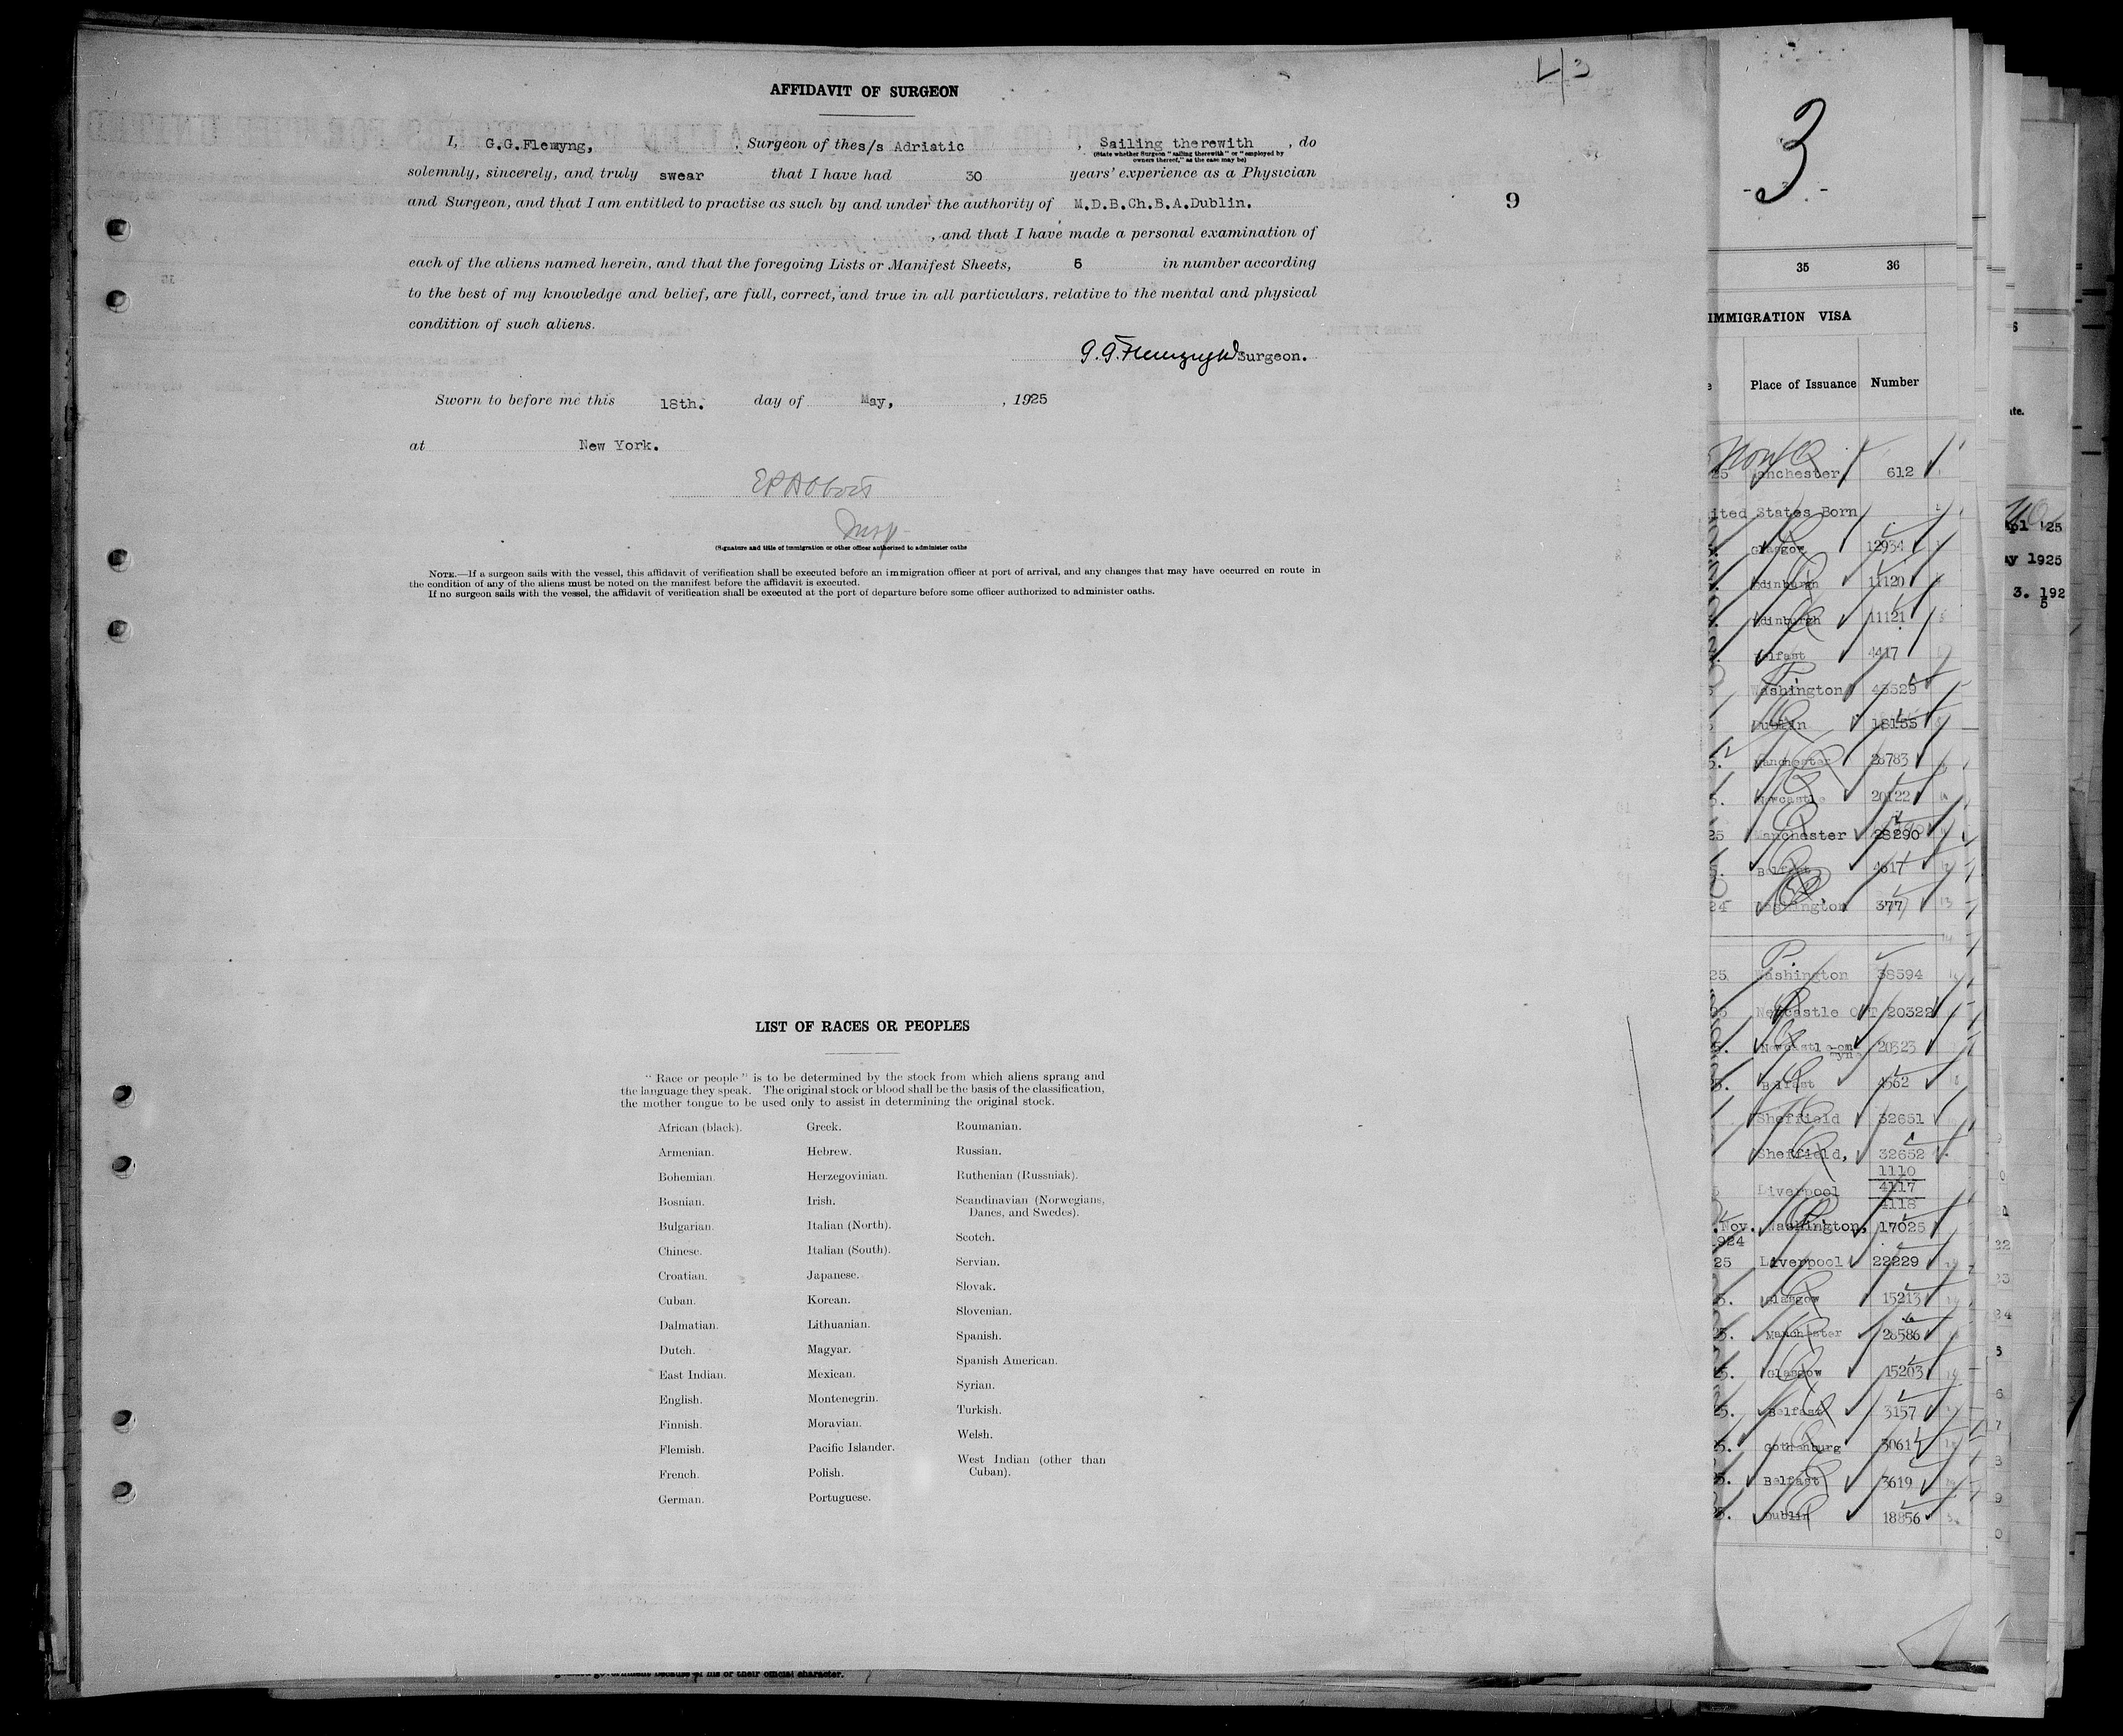 43
AFFIDAVIT OF SURGEON
I, G.G.Flemyng, , Surgeon of the s/s Adriatic , Sailing therewith , do
(State whether Surgeon "sailing therewith" or "employed by
owners thereof," as the case may be)
solemnly, sincerely, and truly swear that I have had 30 years' experience as a Physician
and Surgeon, and that I am entitled to practise as such by and under the authority of M.D.B.Ch.B.A.Dublin.
9
, and that I have made a personal examination of
each of the aliens named herein, and that the foregoing Lists or Manifest Sheets, 6 in number according
to the best of my knowledge and belief, are full, correct, and true in all particulars, relative to the mental and physical
condition of such aliens.
G.G. Flemyng Surgeon.
Sworn to before me this 18th. day of May, , 1925
at New York.
Insp
(Signature and title of immigration or other officer authorized to administer oaths
NOTE.—If a surgeon sails with the vessel, this affidavit of verification shall be executed before an immigration officer at port of arrival, and any changes that may have occurred en route in
the condition of any of the aliens must be noted on the manifest before the affidavit is executed.
If no surgeon sails with the vessel, the affidavit of verification shall be executed at the port of departure before some officer authorized to administer oaths.
LIST OF RACES OR PEOPLES
"Race or people" is to be determined by the stock from which aliens sprang and
the language they speak. The original stock or blood shall be the basis of the classification,
the mother tongue to be used only to assist in determining the original stock.
African (black).
Armenian.
Bohemian.
Bosnian.
Bulgarian.
Chinese.
Croatian.
Cuban.
Dalmatian.
Dutch.
East Indian.
English.
Finnish.
Flemish.
French.
German.
Greek.
Hebrew.
Herzegovinian.
Irish.
Italian (North).
Italian (South).
Japanese.
Korean.
Lithuanian.
Magyar.
Mexican.
Montenegrin.
Moravian.
Pacific Islander.
Polish.
Portuguese.
Roumanian.
Russian.
Ruthenian (Russniak).
Scandinavian (Norwegians,
Danes, and Swedes).
Scotch.
Servian.
Slovak.
Slovenian.
Spanish.
Spanish American.
Syrian.
Turkish.
Welsh.
West Indian (other than
Cuban).
because of his or their official character.
3
35 36
IMMIGRATION VISA
Place of Issuance Number
25 Manchester, 612
ited States Born
Glasgow 12934
Edinburgh 11120
Edinburgh 11121
Belfast 4417
Washington 43529
Dublin 18155
Manchester 28783
Newcastle 20122
25 Manchester 28290
Belfast 4617
24 Washington 377
25 Washington 38594
Newcastle O/T 20322
Newcastle-on 20323
Tyne
Belfast 4562
Sheffield 32651
Sheffield, 32652
1110
Liverpool 4117
4118
Nov. Washington, 17025
1924
25 Liverpool 22229
5. Glasgow 15213
25. Manchester 28586
5. Glasgow 15203
25. Belfast 3157
5. Gothenburg 3061
5. Belfast 3619
5. Dublin 18856
ate.
Apl '25
ay 1925
3. 192
5